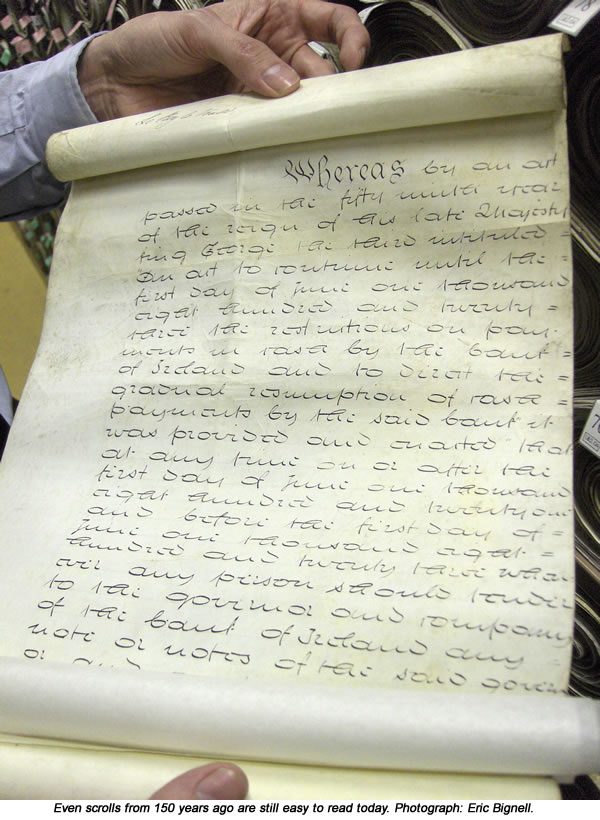 Whereas by an act
passed in the fifty ninth year
of the reign of his late Majesty
King George the third intituled =
An act to continue until the =
first day of June one thousand
eight hundred and twenty =
three the restrictions on pay-
ments in cash by the bank =
of Ireland and to direct the =
gradual resumption of cash =
payments by the said bank it
was provided and enacted that
at any time on or after the
first day of June one thousand
eight hundred and twenty one
and before the first day of =
June one thousand eight =
hundred and twenty three when
ever any person should tender
to the governor and company
of the bank of Ireland any =
note or notes of the said govern
Even scrolls from 150 years ago are still easy to read today. Photograph: Eric Bignell.